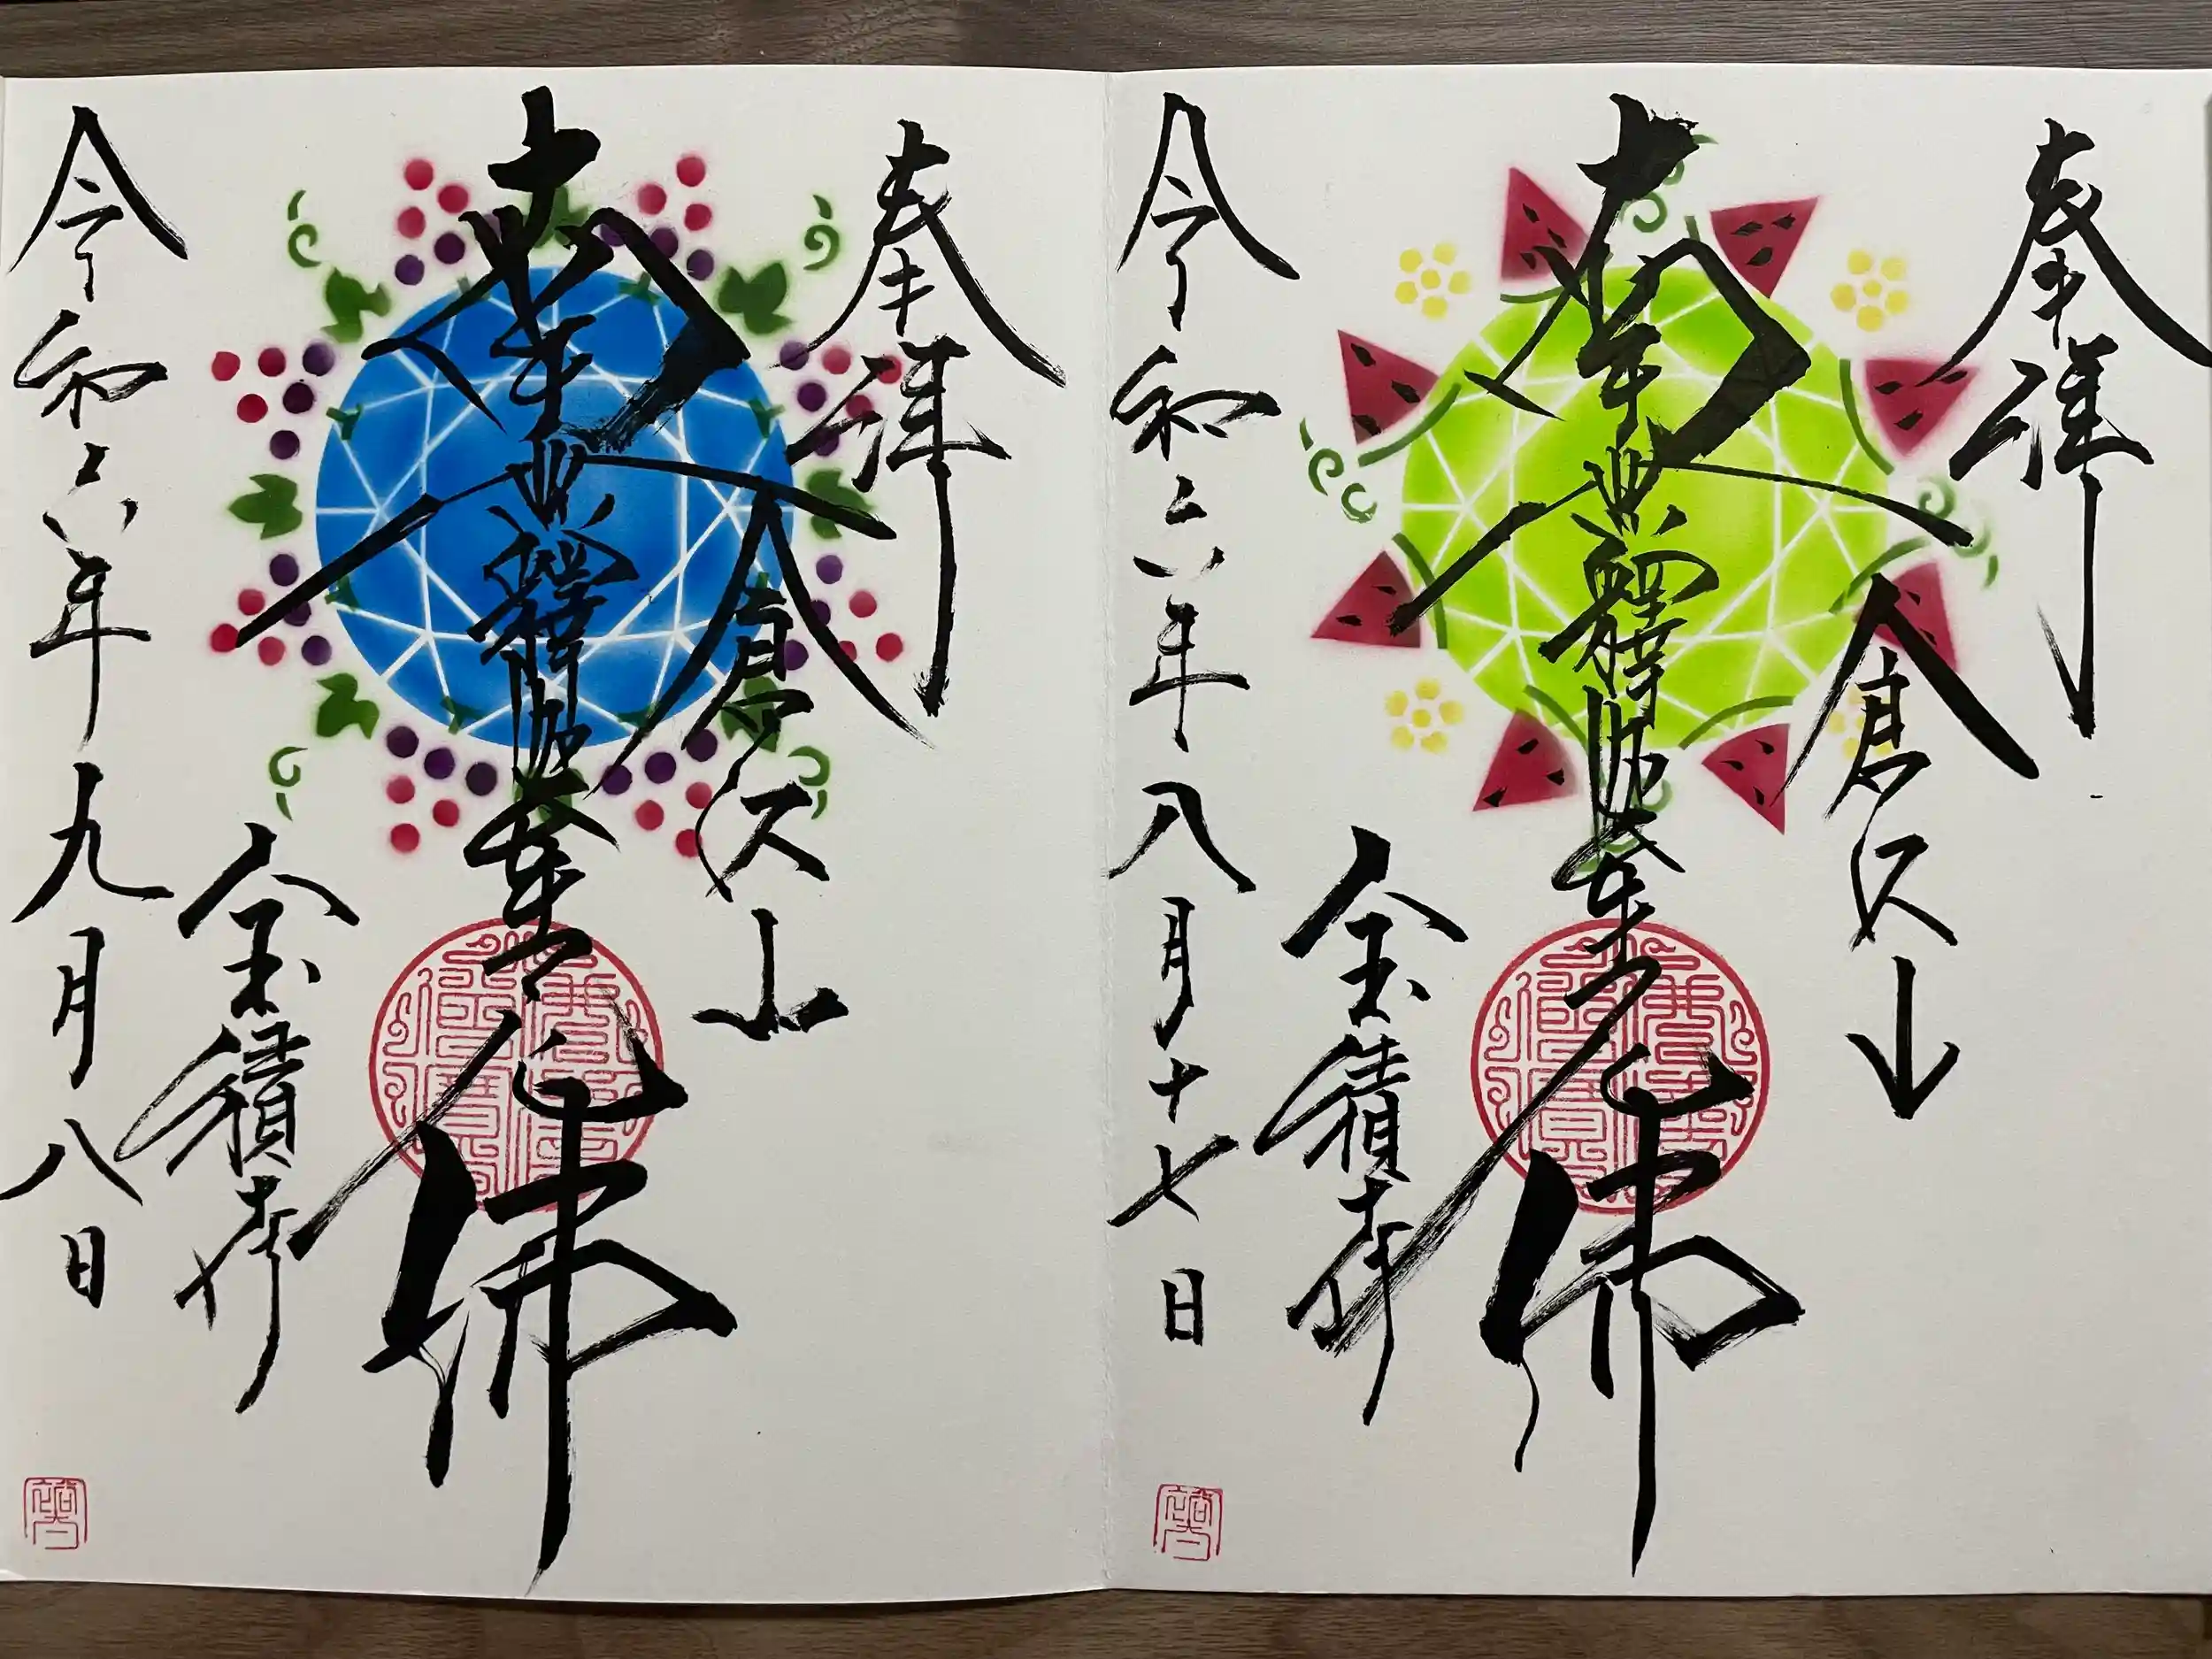 奉拝
倉沢山
南無釋迦牟尼佛
宝積寺
令和六年八月十七日
奉拝
倉沢山
南無釋迦牟尼佛
宝積寺
令和六年九月八日